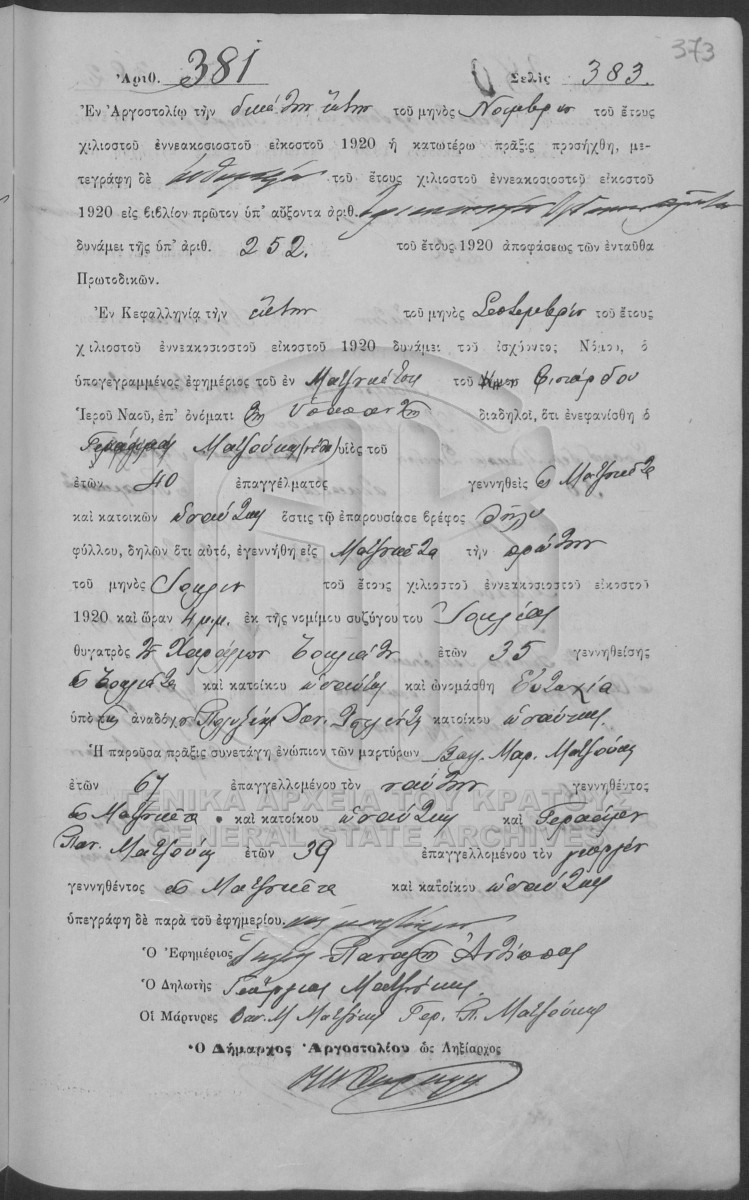 373
Ἀριθ. 381 Σελὶς 383.
Ἐν Ἀργοστολίῳ τὴν δεκάτην ἕκτην τοῦ μηνὸς Νοεμβρίου τοῦ ἔτους
χιλιοστοῦ ἐννεακοσιοστοῦ εἰκοστοῦ 1920 ἡ κατωτέρω πρᾶξις προσήχθη, με-
τεγράφη δὲ αὐθημερόν τοῦ ἔτους χιλιοστοῦ ἐννεακοσιοστοῦ εἰκοστοῦ
1920 εἰς βιβλίον πρῶτον ὑπ' αὔξοντα ἀριθ.
δυνάμει τῆς ὑπ' ἀριθ. 252. τοῦ ἔτους 1920 ἀποφάσεως τῶν ἐνταῦθα
Πρωτοδικῶν.
Ἐν Κεφαλληνίᾳ τὴν ἕκτην τοῦ μηνὸς Σεπτεμβρίου τοῦ ἔτους
χιλιοστοῦ ἐννεακοσιοστοῦ εἰκοστοῦ 1920 δυνάμει τοῦ ἰσχύοντος Νόμου, ὁ
ὑπογεγραμμένος ἐφημέριος τοῦ ἐν Ματζουκάτοις τοῦ Φισκάρδου
Ἱεροῦ Ναοῦ, ἐπ' ὀνόματι τῆς Ὑπαπαντῆς διαδηλοῖ, ὅτι ἐνεφανίσθη ὁ
Ματζούκας υἱὸς τοῦ
ἐτῶν 40 ἐπαγγέλματος γεννηθεὶς εἰς Ματζουκάτα
καὶ κατοικῶν ὡσαύτως ὅστις τῷ ἐπαρουσίασε βρέφος θήλυ
φύλλου, δηλῶν ὅτι αὐτό, ἐγεννήθη εἰς Ματζουκάτα τὴν πρώτην
τοῦ μηνὸς Ἰουλίου τοῦ ἔτους χιλιοστοῦ ἐννεακοσιοστοῦ εἰκοστοῦ
1920 καὶ ὥραν 4 μ.μ. ἐκ τῆς νομίμου συζύγου του Ἰουλίας
θυγατρὸς Χαραλάμπου ἐτῶν 35 γεννηθείσης
καὶ κατοίκου ὡσαύτως καὶ ὠνομάσθη Εὐσταχία
ὑπὸ ἀναδόχου κατοίκου ὡσαύτως.
Ἡ παροῦσα πρᾶξις συνετάγη ἐνώπιον τῶν μαρτύρων Μαρ. Ματζούκα
ἐτῶν 67 ἐπαγγελλομένου τὸν ναύτην γεννηθέντος
εἰς Ματζουκάτα καὶ κατοίκου ὡσαύτως καὶ Γερασίμου
Παν. Ματζούκα ἐτῶν 39 ἐπαγγελλομένου τὸν γεωργόν
γεννηθέντος εἰς Ματζουκάτα καὶ κατοίκου ὡσαύτως
ὑπεγράφη δὲ παρὰ τοῦ ἐφημερίου. καὶ μαρτύρων
Ὁ Ἐφημέριος
Ὁ Δηλωτὴς Γεράσιμος Ματζούκας
Οἱ Μάρτυρες Ματζούκας Γερ. Π. Ματζούκας
Ὁ Δήμαρχος Ἀργοστολέου ὡς Ληξίαρχος
ΓΕΝΙΚΑ ΑΡΧΕΙΑ ΤΟΥ ΚΡΑΤΟΥΣ
GENERAL STATE ARCHIVES